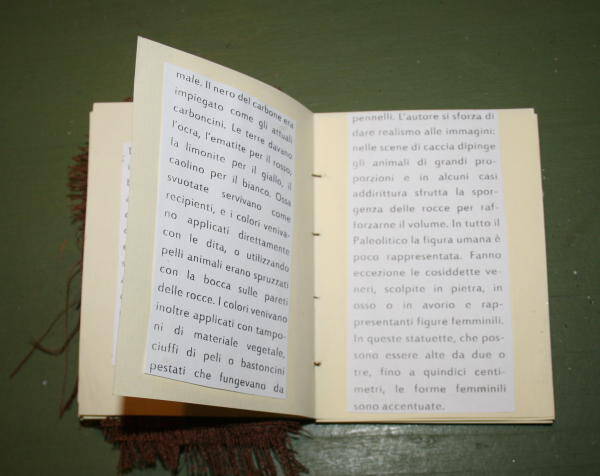 male. Il nero del carbone era
impiegato come gli attuali
carboncini. Le terre davano
l'ocra, l'ematite per il rosso,
la limonite per il giallo, il
caolino per il bianco. Ossa
svuotate servivano come
recipienti, e i colori veniva-
no applicati direttamente
con le dita, o utilizzando
pelli animali erano spruzzati
con la bocca sulle pareti
delle rocce. I colori venivano
inoltre applicati con tampo-
ni di materiale vegetale,
ciuffi di peli o bastoncini
pestati che fungevano da
pennelli. L'autore si sforza di
dare realismo alle immagini:
nelle scene di caccia dipinge
gli animali di grandi pro-
porzioni e in alcuni casi
addirittura sfrutta la spor-
genza delle rocce per raf-
forzarne il volume. In tutto il
Paleolitico la figura umana è
poco rappresentata. Fanno
eccezione le cosiddette ve-
neri, scolpite in pietra, in
osso o in avorio e rap-
presentanti figure femminili.
In queste statuette, che pos-
sono essere alte da due o
tre, fino a quindici centi-
metri, le forme femminili
sono accentuate.